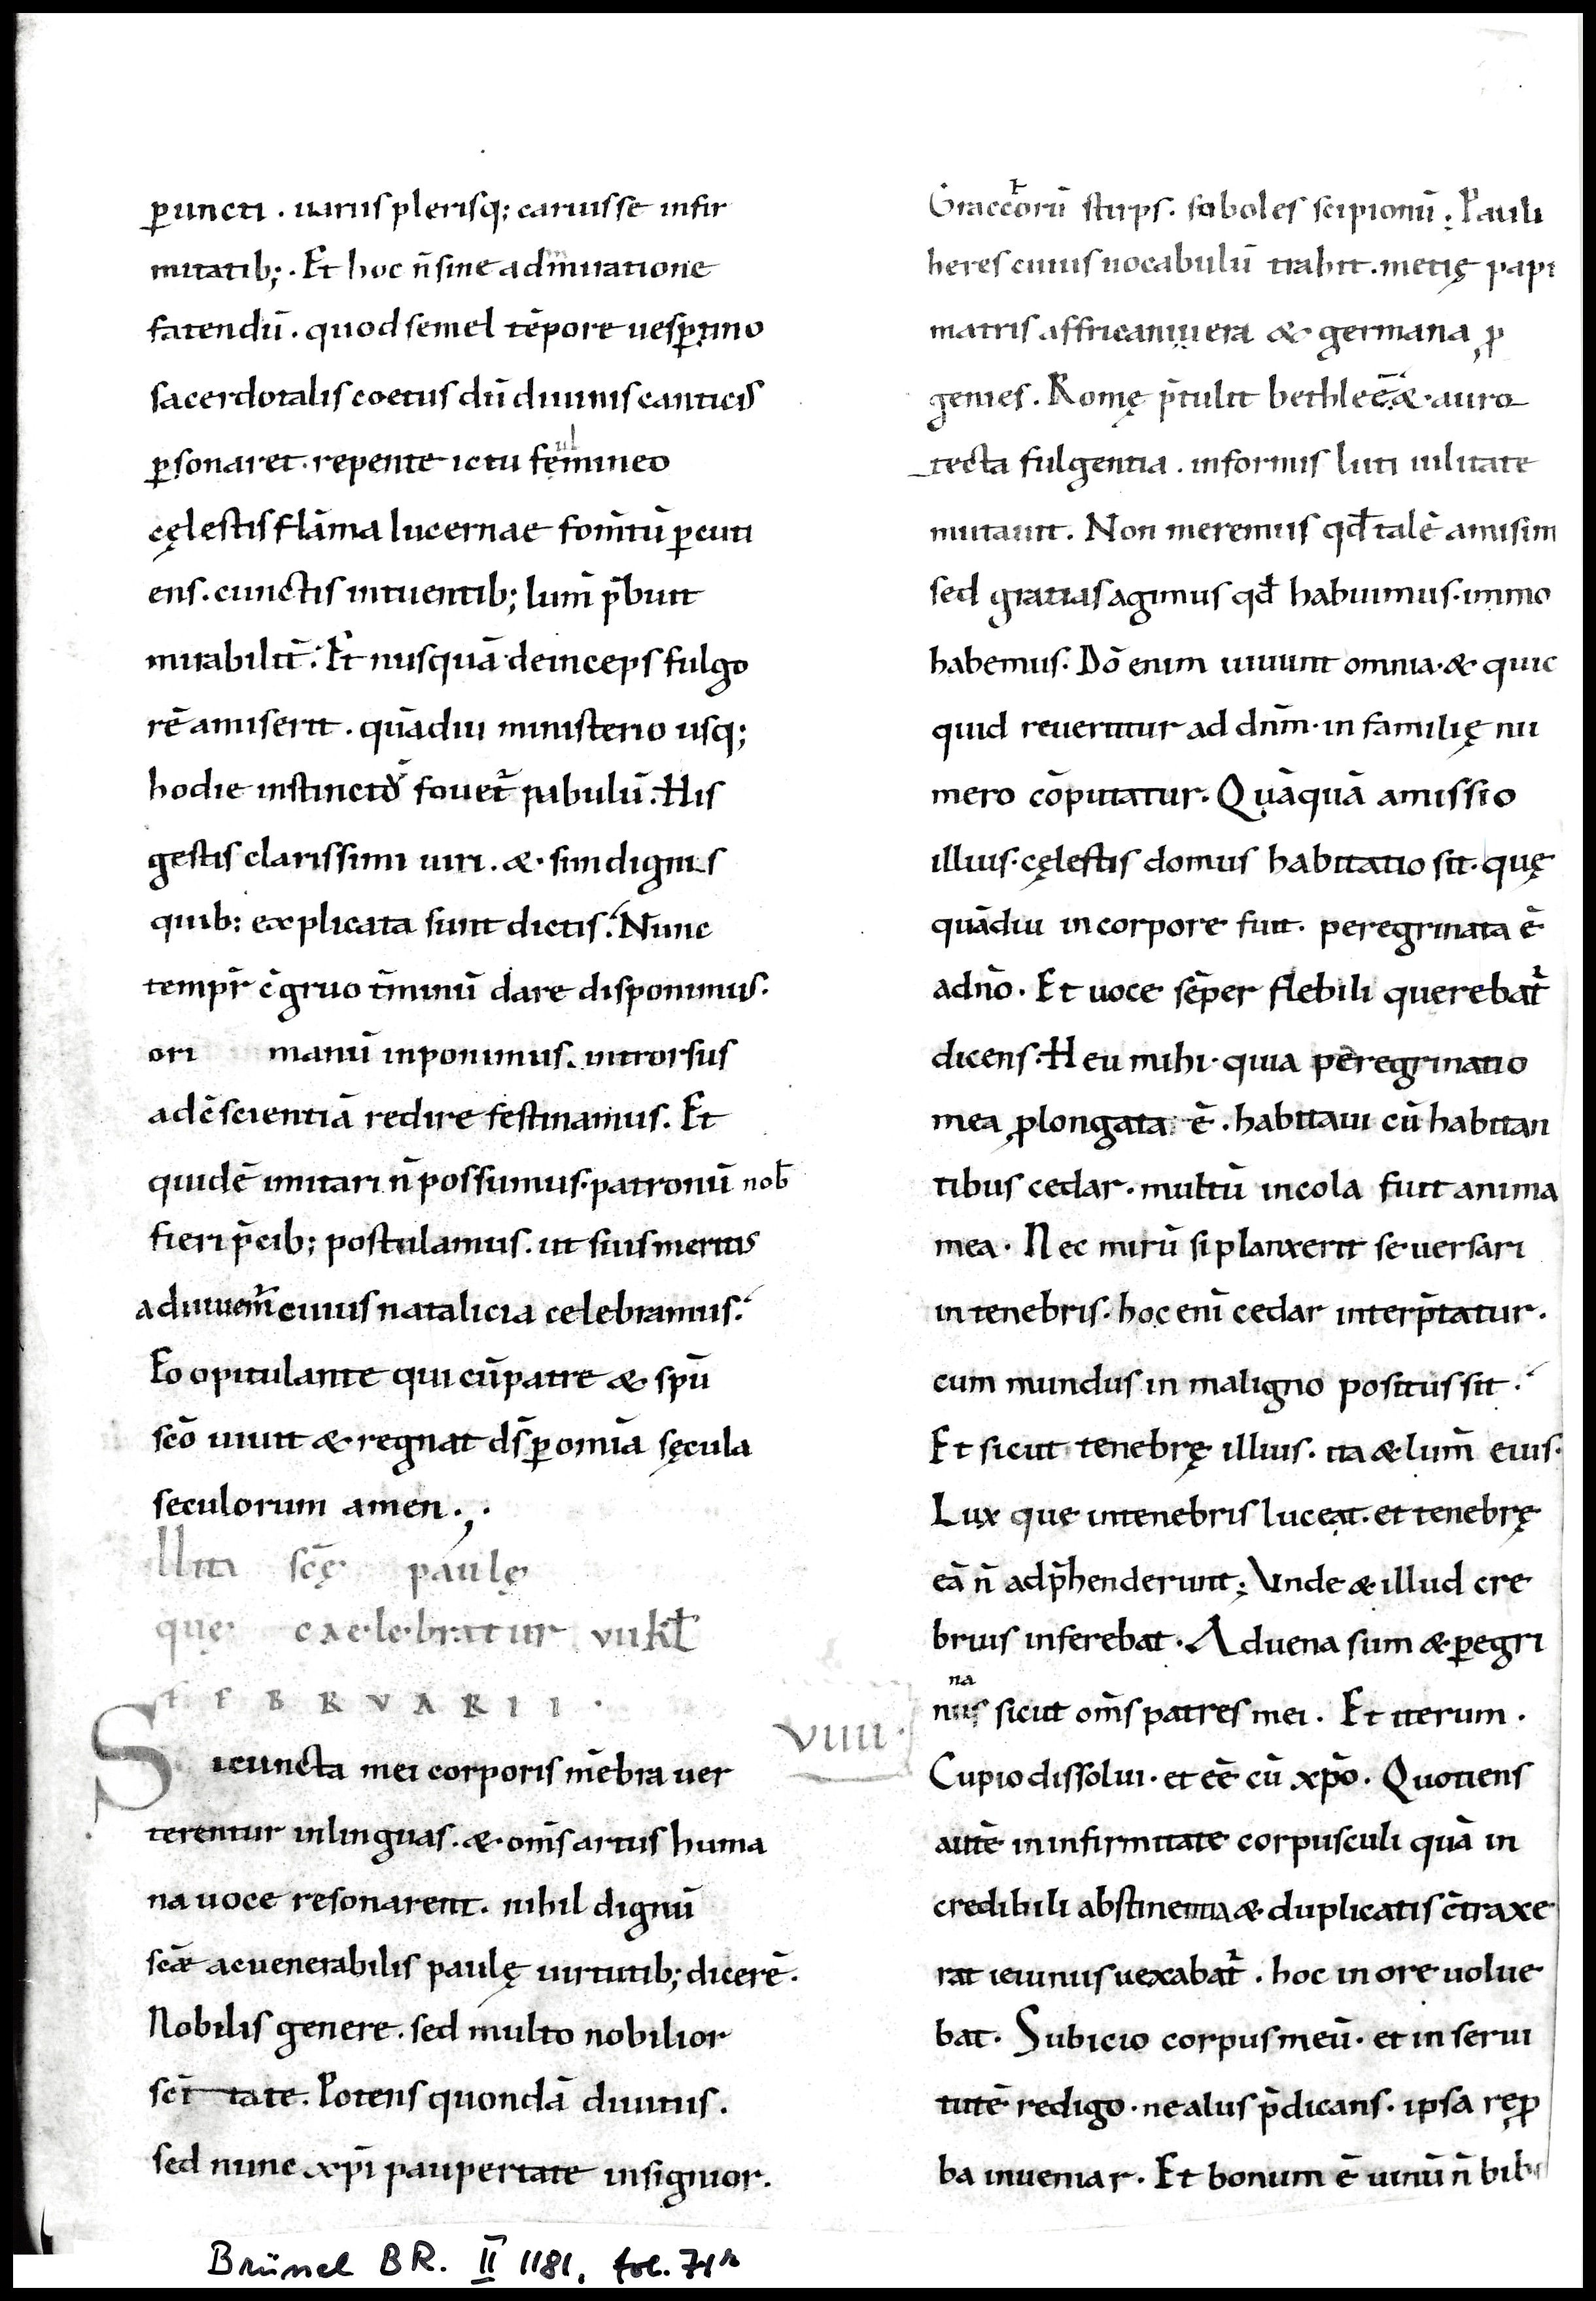 ꝑuncti . uariis plerisq; caruisse infir
mitatib; . Et hoc n̄ sine admiratione
fatendū . quod semel tēpore uesꝑtino
sacerdotalis coetus dū diuinis canticis
ꝑsonaret . repente ictu femineo
cęlestis flāma lucernae fom̄tū ꝑcuti
ens . cunctis intuentib; lum̄ p̄buit
mirabilit̄ . Et nusquā deinceps fulgo
rē amiserit . quādiu ministerio usq;
hodie instincto fouet̄ pabulū . His
gestis clarissimi uiri . & sun dignis
quib; explicata sunt dictis . Nunc
tempr̄ c̄gruo t̄minū dare disponimus .
ori manū inponimus . introrsus
ad c̄scientiā redire festinamus . Et
quidē imitari n̄ possumus . patronū nob̄
fieri p̄cib; postulamus . ut suis meritis
adiuuem̄ cuius natalicia celebramus .
Eo opitulante qui cū patre & spū
scō uiuit & regnat ds̄ ꝑ omīa sęcula
seculorum amen .,.
scę̄ paulę
quę caelebratur vii kl̄
FEBRVARII .
Si cuncta mei corporis mēbra uer
terentur in linguas . & om̄s artus huma
na uoce resonarent . nihil dignū
scāe ac uenerabilis paulę uirtutib; dicerē .
Nobilis genere . sed multo nobilior
sc̄i tate . Potens quondā diuitiis .
sed nunc xp̄i paupertate insignior .
VIIII .
Graccorū stirps . soboles scipionū . Pauli
heres cuius uocabulū trahit . metię papi
matris affricani uera & germana ꝓ
genies . Romę p̄tulit bethleē . & auro
tecta fulgentia . informis luti uilitate
mutauit . Non meremus qd̄ talē amisim
sed gratias agimus qd̄ habuimus . immo
habemus . Dō enim uiuunt omnia . & quic
quid reuertitur ad dnm̄ . in familię nu
mero cōputatur . Quāquā amissio
illius . cęlestis domus habitatio sit . quę
quādiu in corpore fuit . peregrinata ē
a dn̄o . Et uoce sēper flebili querebat̄
dicens . Heu mihi . quia peregrinatio
mea ꝓlongata ē . habitaui cū habitan
tibus cedar . multū incola fuit anima
mea . Nec mirū si planxerit se uersari
in tenebris . hoc enī cedar interp̄tatur .
cum mundus in maligno positus sit .
Et sicut tenebrę illius . ita & lum̄ eius .
Lux que in tenebris luceat . et tenebrę
eā n̄ adp̄henderunt ; Unde & illud cre
brius inferebat . Aduena sum & ꝑegri
na
nus sicut om̄s patres mei . Et iterum .
Cupio dissolui . et eē cū xp̄o . Quotiens
autē in infirmitate corpusculi quā in
credibili abstinentia & duplicatis c̄traxe
rat ieiuniis uexabat̄ . hoc in ore uolue
bat . Subicio corpus meū . et in serui
tutē redigo . ne aliis p̄dicans . ipsa reꝓ
ba inueniar . Et bonum ē uinū n̄ bibe
Brüssel BR. II 1181, fol. 71r